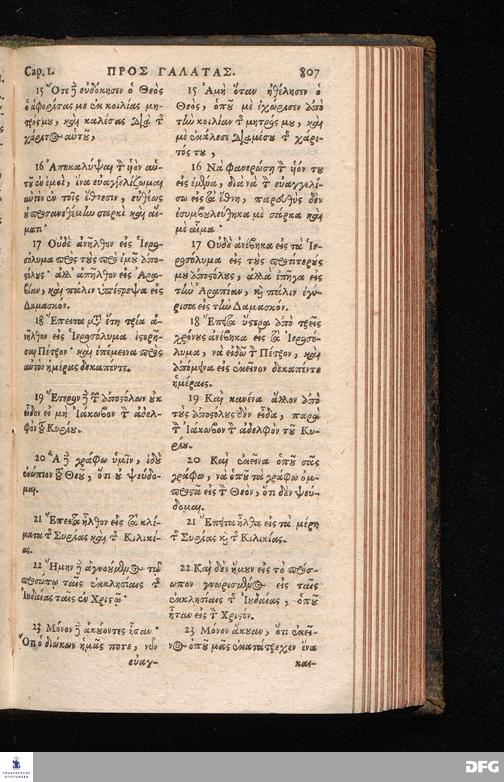 Cap. 1.
ΠΡΟΣ ΓΑΛΑΤΑΣ.
807
15 Ὅτε ἢ εὐδόκησεν ὁ Θεὸς
ὁ ἀφορίσας με ἐκ κοιλίας μη-
τρός μου, καὶ καλέσας διὰ τ̃
χάριτος αὐτοῦ,
16 Ἀποκαλύψαι τ̀ ὑὸν αὑ-
τοῦ ἐν ἐμοὶ, ἵνα εὐαγγελίζωμαι
αὐτὸν ἐν τοῖς ἔθνεσιν, εὐθέως
οὐ προσανεθέμην σαρκὶ καὶ αἵ-
ματι·
17 Οὐδὲ ἀνῆλθον εἰς Ἱερο-
σόλυμα πρὸς τοὺς πρὸ ἐμοῦ ἀπο-
στόλους· ἀλλ' ἀπῆλθον εἰς Ἀρα-
βίαν, καὶ πάλιν ὑπέστρεψα εἰς
Δαμασκόν.
18 Ἔπειτα μτ̀ ἔτη τρία ἀ-
νῆλθον εἰς Ἱεροσόλυμα ἱστορῆ-
σαι Πέτρον· καὶ ἐπέμεινα πρὸς
αὐτὸν ἡμέρας δεκαπέντε.
19 Ἕτερον ἢ τ̃ ἀποστόλων οὐκ
εἶδον εἰ μὴ Ἰάκωβον τ̀ ἀδελ-
φὸν τ̃ Κυρίου.
20 Ἃ ἢ γράφω ὑμῖν, ἰδοὺ
ἐνώπιον τ̃ Θεοῦ, ὅτι οὐ ψεύδο-
μαι.
21 Ἔπειτα ἦλθον εἰς τὰ κλί-
ματα τ̃ Συρίας καὶ τ̃ Κιλικί-
ας.
22 Ἤμην ἢ ἀγνοούμενος τῷ
προσώπῳ ταῖς ἐκκλησίαις τ̃
Ἰουδαίας ταῖς ἐν Χριστῷ·
23 Μόνον ἢ ἀκούοντες ἦσαν·
Ὅτι ὁ διώκων ἡμᾶς ποτε, νῦν
εὐαγ-
15 Ἀμὴ ὅταν ἠθέλησεν ὁ
Θεὸς, ὁποῦ μὲ ἐχώρισεν ἀπὸ
τὴν κοιλίαν τ̃ μητρός μου, καὶ
μὲ ἐκάλεσε διαμέσου τ̃ χάρι-
τός του,
16 Νὰ φανερώσῃ τ̀ ὑόν του
εἰς ἐμένα, διὰ νὰ τ̀ εὐαγγελί-
σω εἰς τὰ ἔθνη, παρευθὺς δὲν
ἐσυμβουλεύθηκα μὲ σάρκα καὶ
μὲ αἷμα·
17 Οὐδὲ ἀνέβηκα εἰς τὰ Ἱε-
ροσόλυμα εἰς τοὺς προτιτερούς
μου ἀποστόλους, ἀλλὰ ἐπῆγα εἰς
τὴν Ἀραπίαν, κ̀ πάλιν ἐγύ-
ρισα εἰς τὴν Δαμασκόν.
18 Ἔπειτα ὕστερα ἀπὸ τρεῖς
χρόνους ἀνέβηκα εἰς τὰ Ἱεροσό-
λυμα, νὰ εἰδῶ τ̀ Πέτρον, καὶ
ἀπόμεινα εἰς ἐκεῖνον δεκαπέντε
ἡμέραις.
19 Καὶ κανένα ἄλλον ἀπὸ
τοὺς ἀποστόλους δὲν εἶδα, παρὰ
τ̀ Ἰάκωβον τ̀ ἀδελφὸν τοῦ Κυ-
ρίου.
20 Καὶ ἐκεῖνα ὁποῦ σᾶς
γράφω, νὰ ὁποῦ τὰ γράφω ὀμ-
προστὰ εἰς τ̀ Θεὸν, ὅτι δὲν ψεύ-
δομαι.
21 Ἔπειτα ἦλθα εἰς τὰ μέρη
τ̃ Συρίας κ̀ τ̃ Κιλικίας.
22 Καὶ δὲν ἤμουν εἰς τὸ πρόσ-
ωπον γνωρισμένος εἰς ταῖς
ἐκκλησίαις τ̃ Ἰουδαίας, ὁποῦ
ἦταν εἰς τ̀ Χριστόν.
23 Μόνον ἄκουαν, ὅτι ἐκεῖ-
νος ὁποῦ μᾶς ἐκατάτρεχεν ἕνα
και-
FRANCKESCHE STIFTUNGEN
DFG